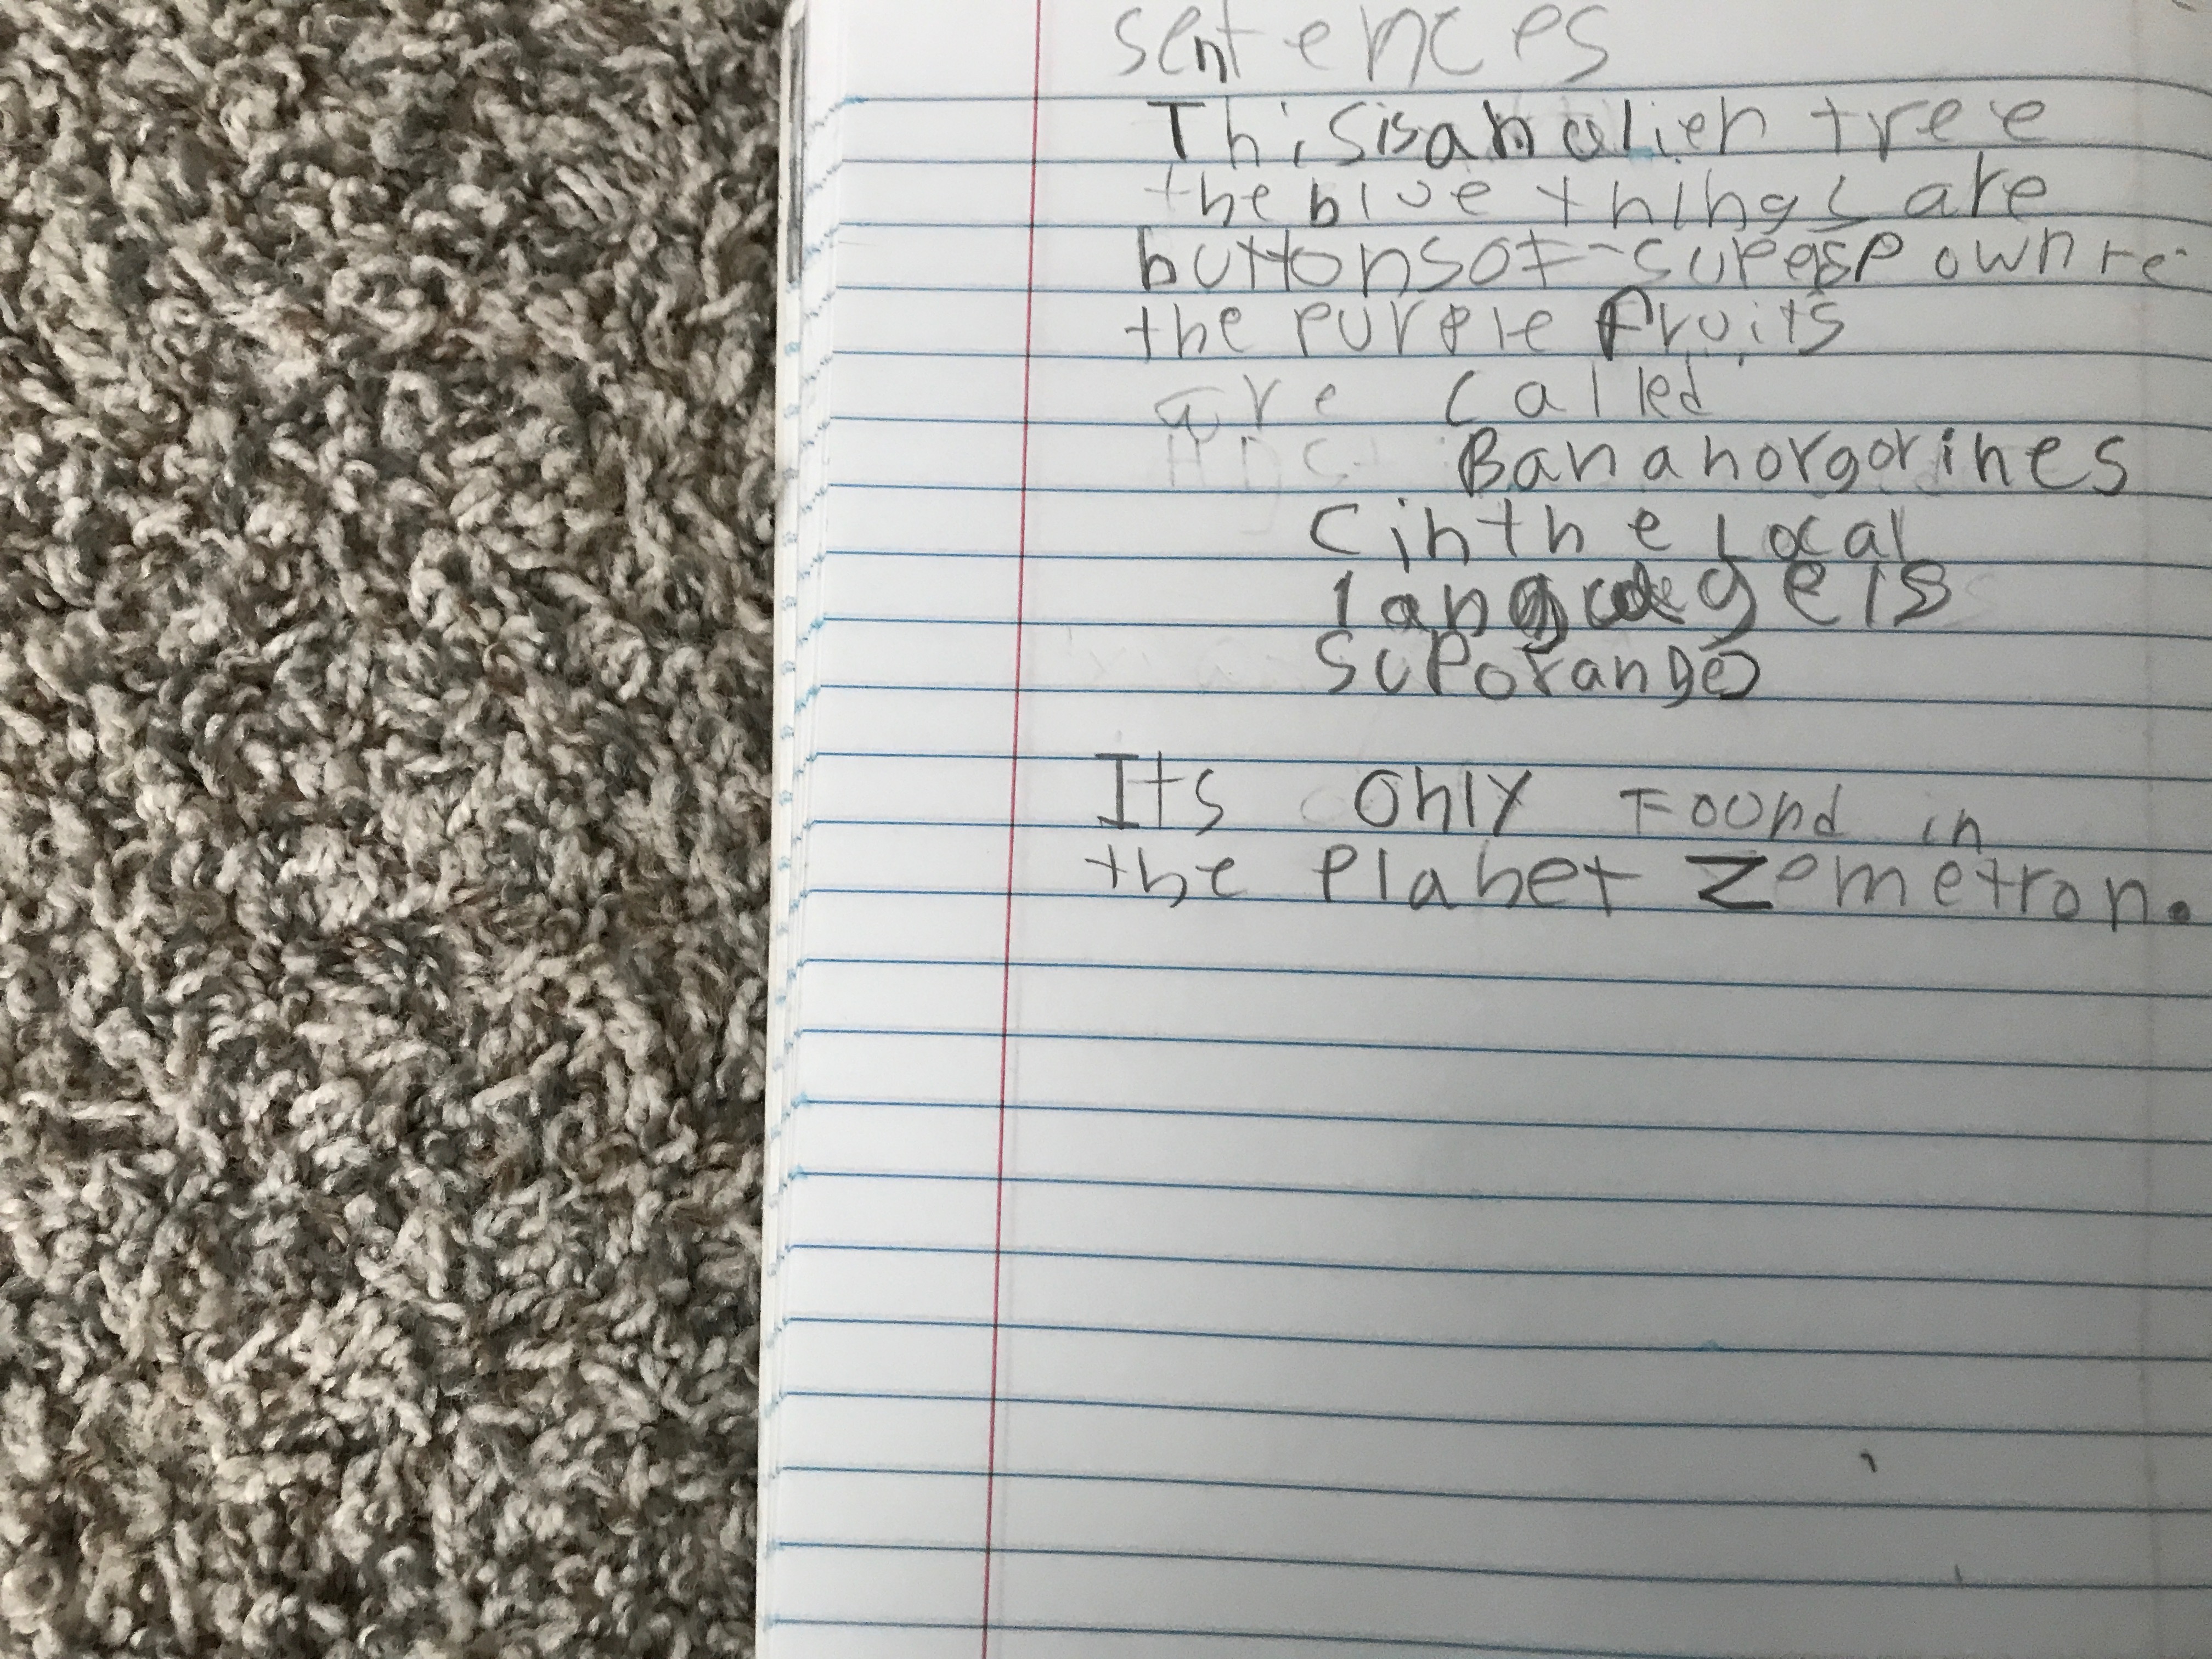 sentences
This is an alien tree
the blue things are
buttons of super
the purple fruits
are called
Bananorgorines
(in the local
langudge is
suporange)
Its only Found in
the Planet Zometron.